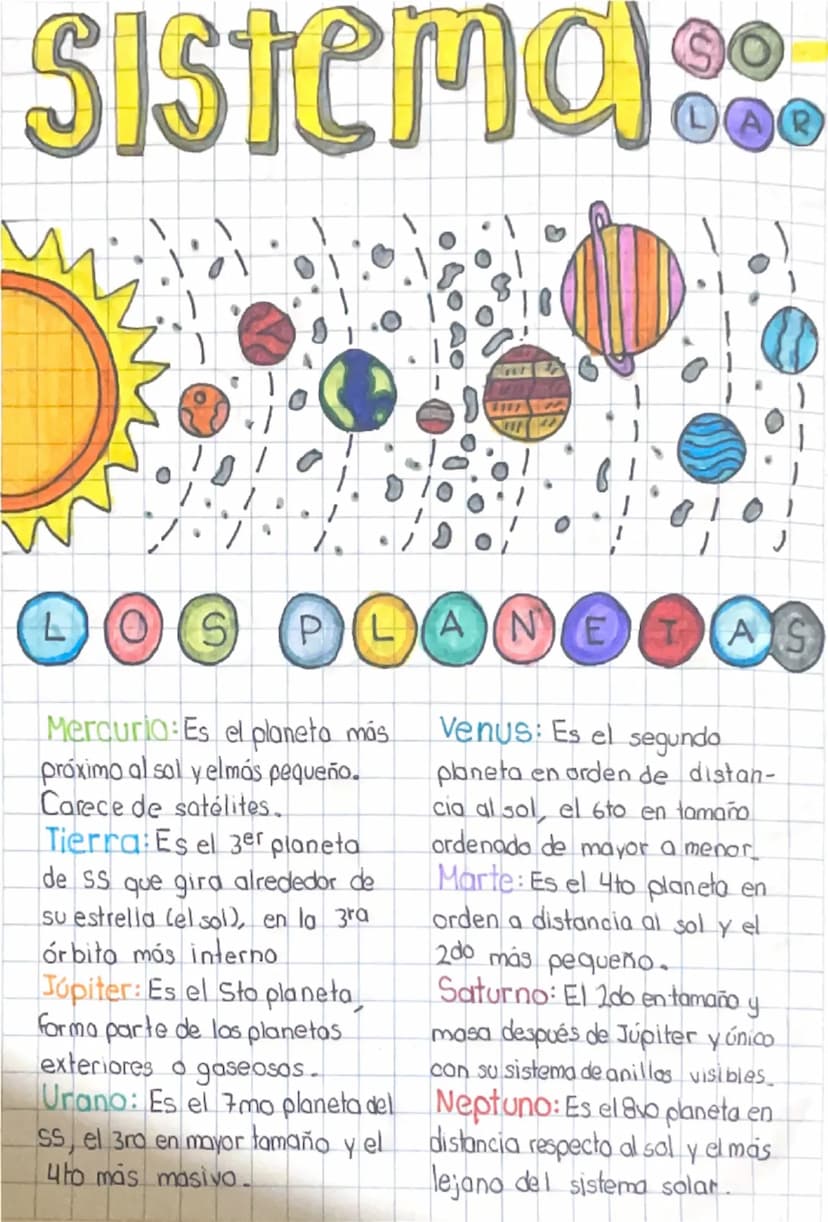 Sistema
SO-
LAR
LOS PLANETAS
Mercurio: Es el planeta más
próximo al sol y el más pequeño.
Carece de satélites.
Tierra: Es el 3er planeta
de SS que gira alrededor de
su estrella (el sol), en la 3ra
órbita más interno
Júpiter: Es el 5to planeta,
forma parte de los planetas
exteriores o gaseosos.
Urano: Es el 7mo planeta del
SS, el 3ro en mayor tamaño y el
4to más masivo.
Venus: Es el segundo
planeta en orden de distan-
cia al sol, el 6to en tamaño
ordenado de mayor a menor.
Marte: Es el 4to planeta en
orden a distancia al sol y el
2do más pequeño.
Saturno: El 2do en tamaño y
masa después de Júpiter y único
con su sistema de anillos visibles.
Neptuno: Es el 8vo planeta en
distancia respecto al sol y el más
lejano del sistema solar.